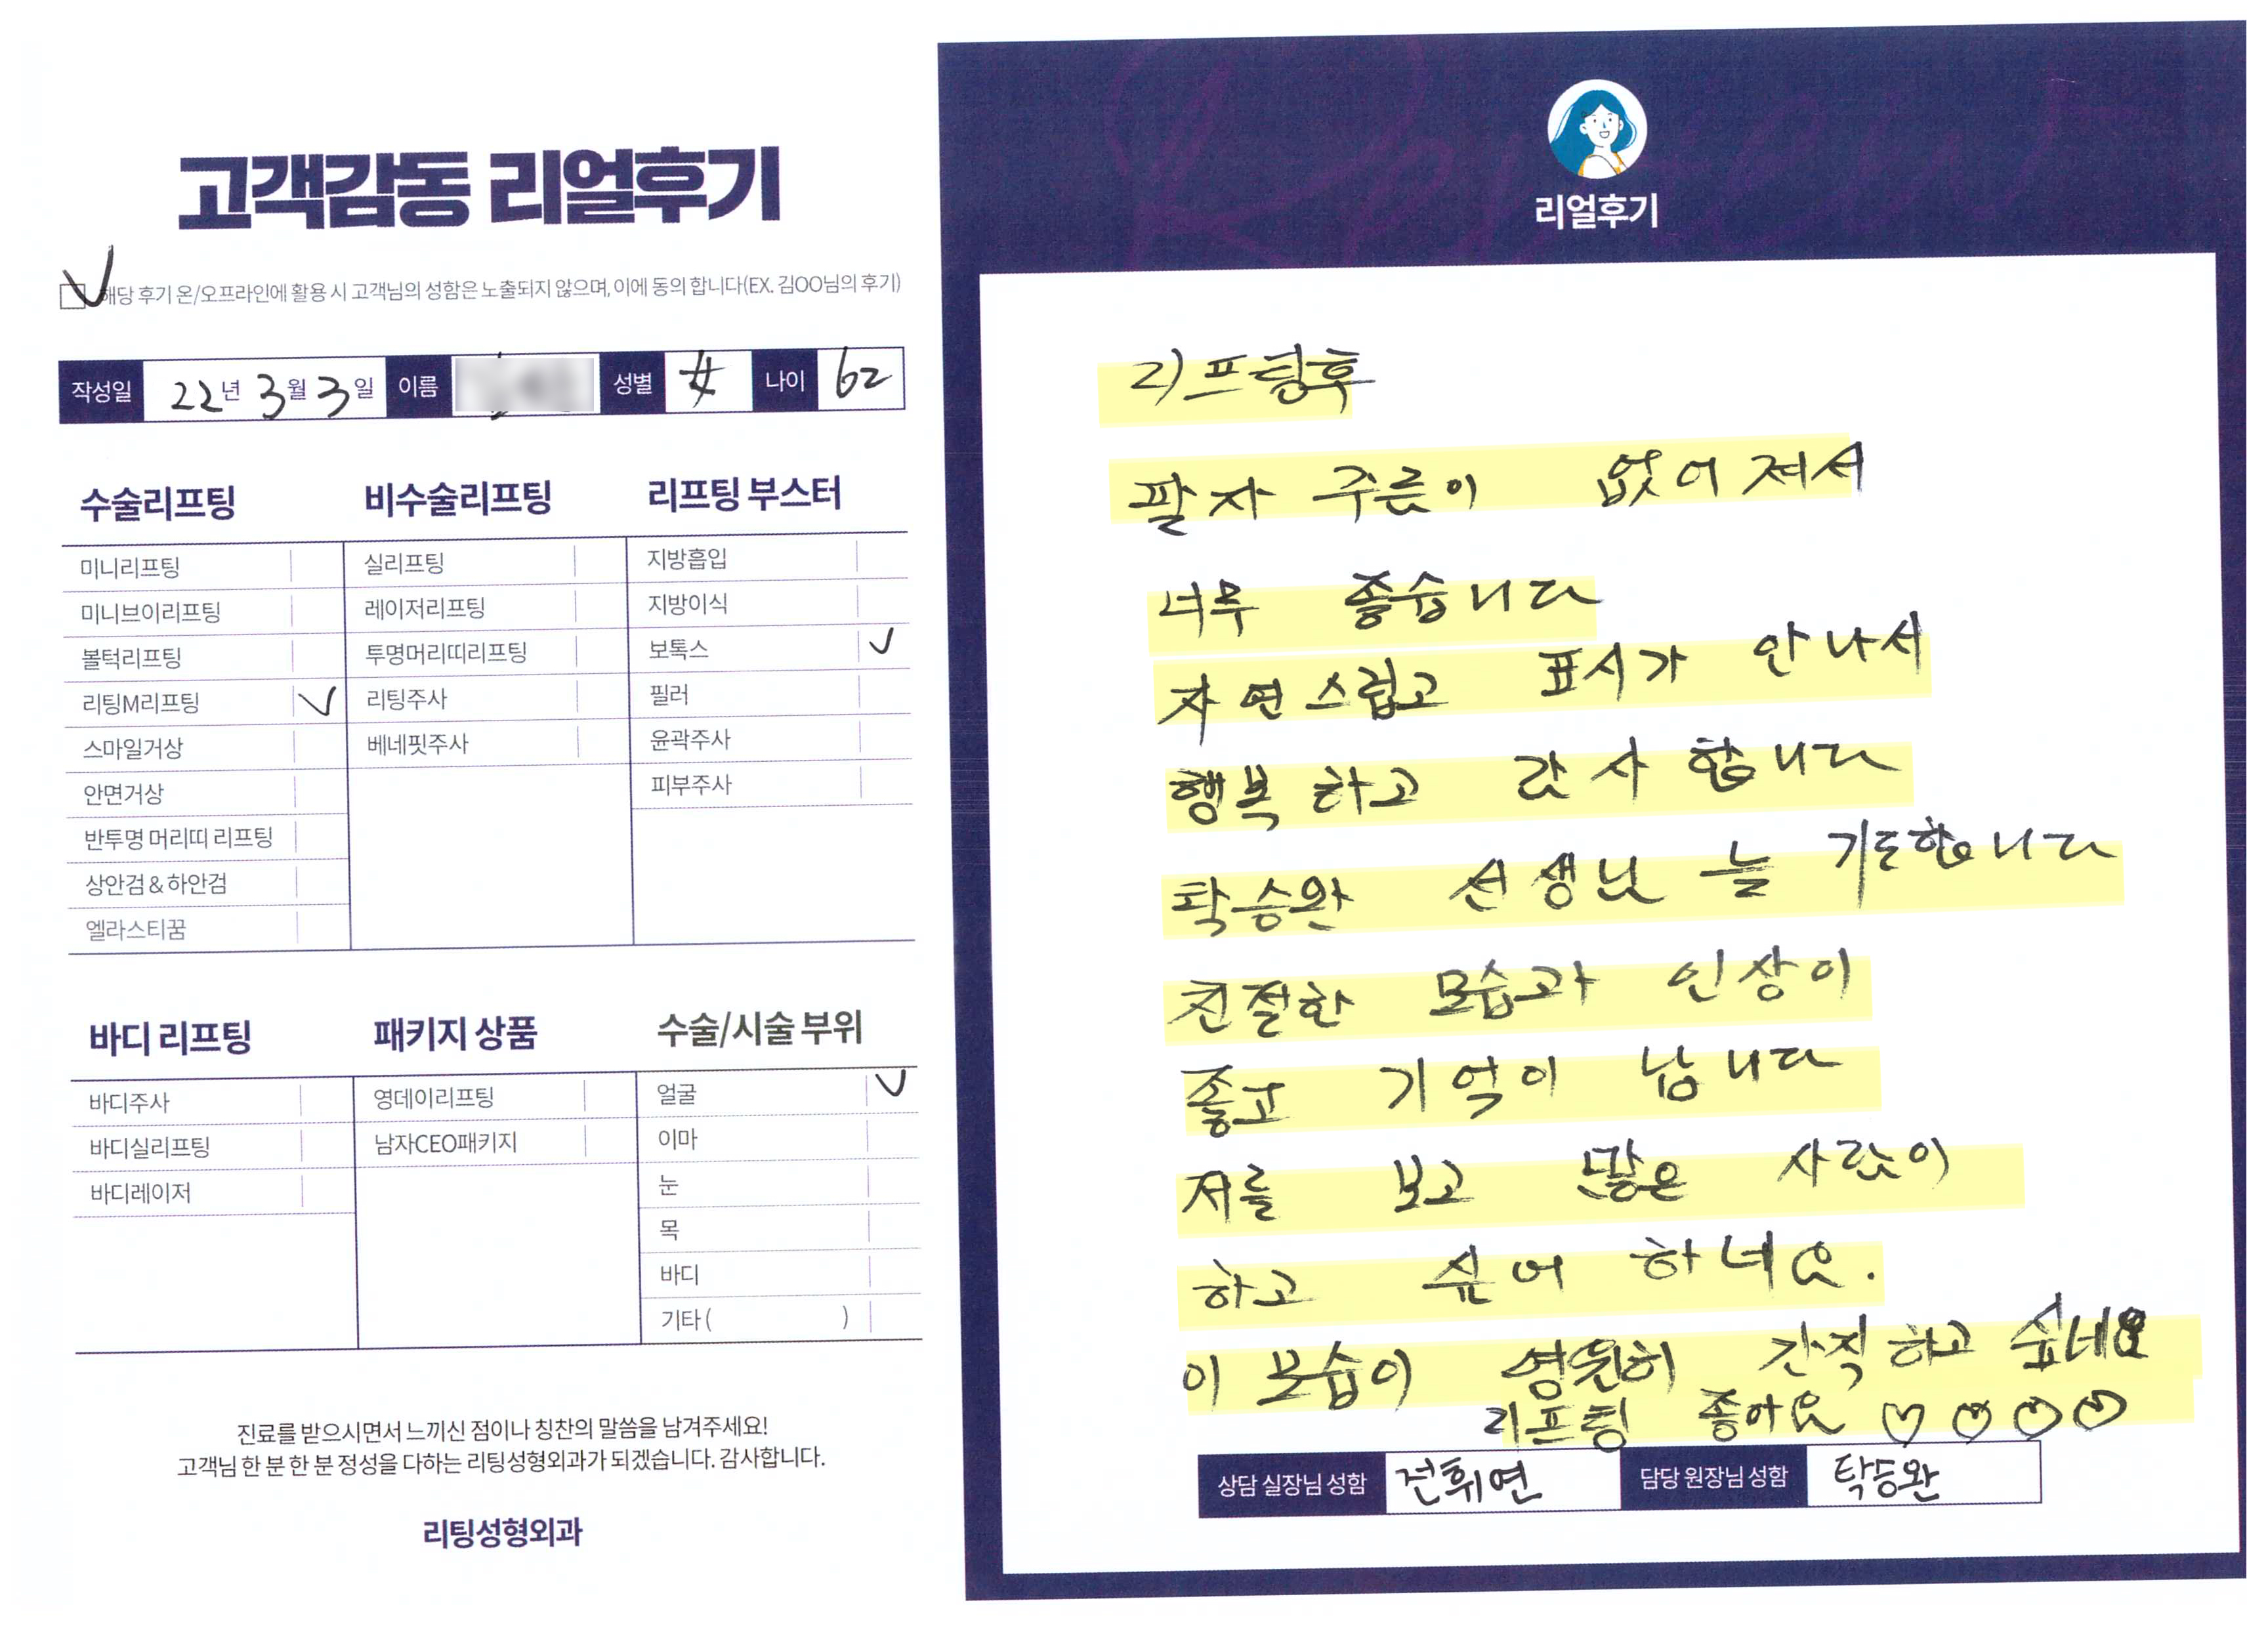 고객감동 리얼후기
해당 후기 온/오프라인에 활용 시 고객님의 성함은 노출되지 않으며, 이에 동의 합니다(EX. 김OO님의 후기)
작성일 22년 3월 3일 이름 성별 女 나이 62
수술리프팅
미니리프팅
미니브이리프팅
볼턱리프팅
리팅M리프팅
스마일거상
안면거상
반투명 머리띠 리프팅
상안검&하안검
엘라스티꿈
비수술리프팅
실리프팅
레이저리프팅
투명머리띠리프팅
리팅주사
베네핏주사
리프팅 부스터
지방흡입
지방이식
보톡스
필러
윤곽주사
피부주사
바디 리프팅
바디주사
바디실리프팅
바디레이저
패키지 상품
영데이리프팅
남자CEO패키지
수술/시술 부위
얼굴
이마
눈
목
바디
기타 ( )
진료를 받으시면서 느끼신 점이나 칭찬의 말씀을 남겨주세요!
고객님 한 분 한 분 정성을 다하는 리팅성형외과가 되겠습니다. 감사합니다.
리팅성형외과
리얼후기
리프팅후
팔자 주름이 없어져서
너무 좋습니다
자연스럽고 표시가 안나서
행복하고 감사합니다
탁승완 선생님 늘 기도합니다
친절한 모습과 인상이
좋고 기억이 납니다
저를 보고 많은 사람이
하고 싶어 하네요.
이 모습이 영원히 간직하고 싶네요
리프팅 좋아요 ♡♡♡♡
상담 실장님 성함 전휘연 담당 원장님 성함 탁승완